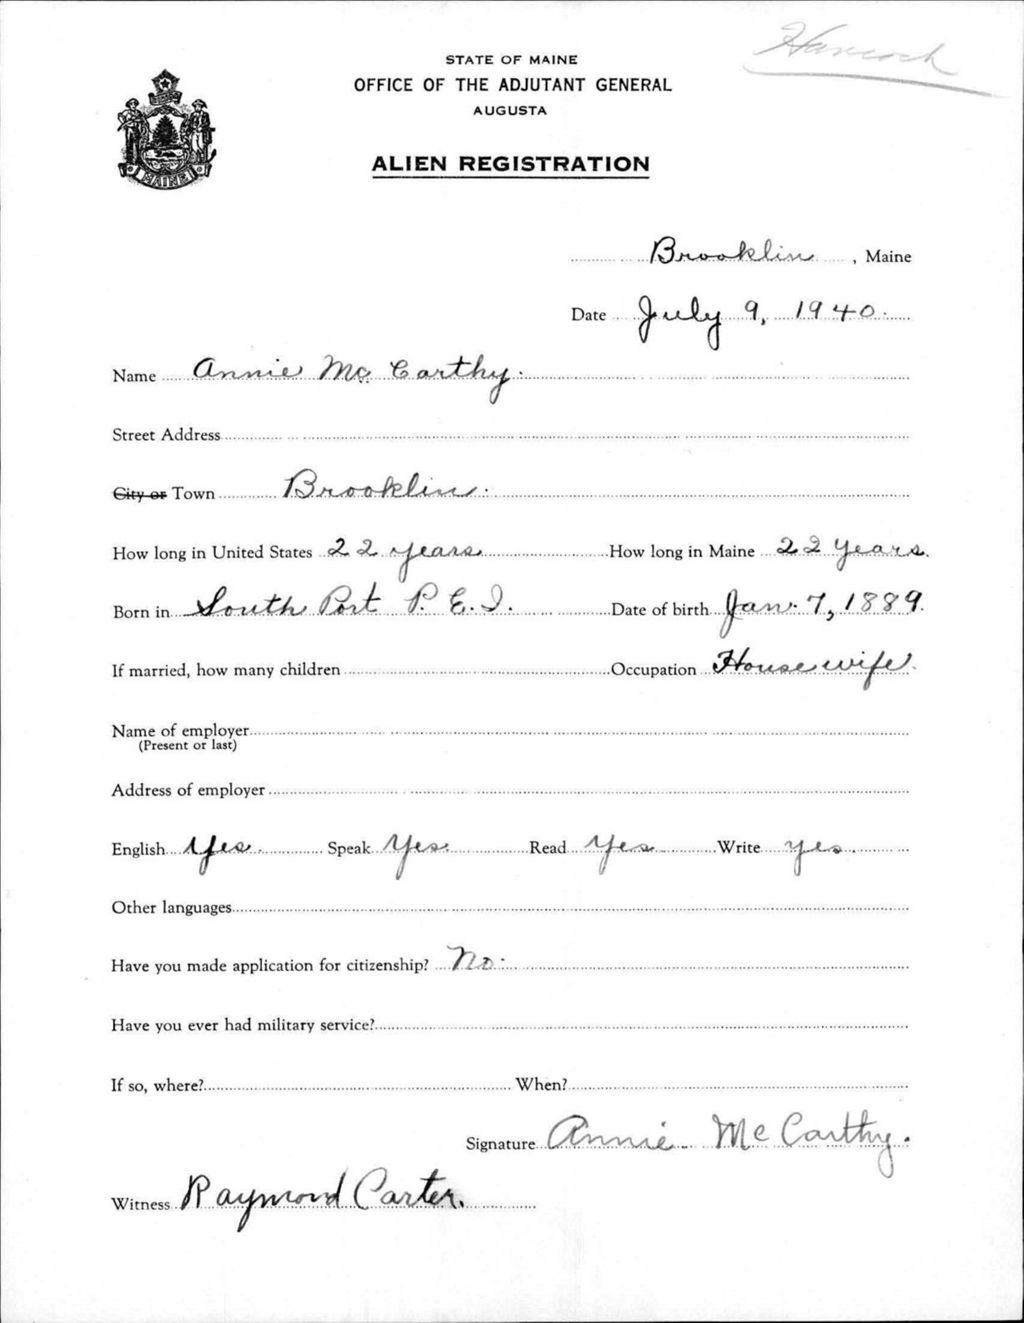 Hancock
STATE OF MAINE
OFFICE OF THE ADJUTANT GENERAL
AUGUSTA
MAINE
ALIEN REGISTRATION
Brooklin, Maine
Date July 9, 1940.
Name Annie Mc Carthy.
Street Address
City or Town Brooklin.
How long in United States 22 years How long in Maine 22 years.
Born in South Port P. E. I. Date of birth Jan. 7, 1889.
If married, how many children Occupation House wife.
Name of employer
(Present or last)
Address of employer
English Yes. Speak Yes. Read Yes Write yes.
Other languages
Have you made application for citizenship? No.
Have you ever had military service?
If so, where? When?
Signature Annie Mc Carthy.
Witness Raymond Carter.